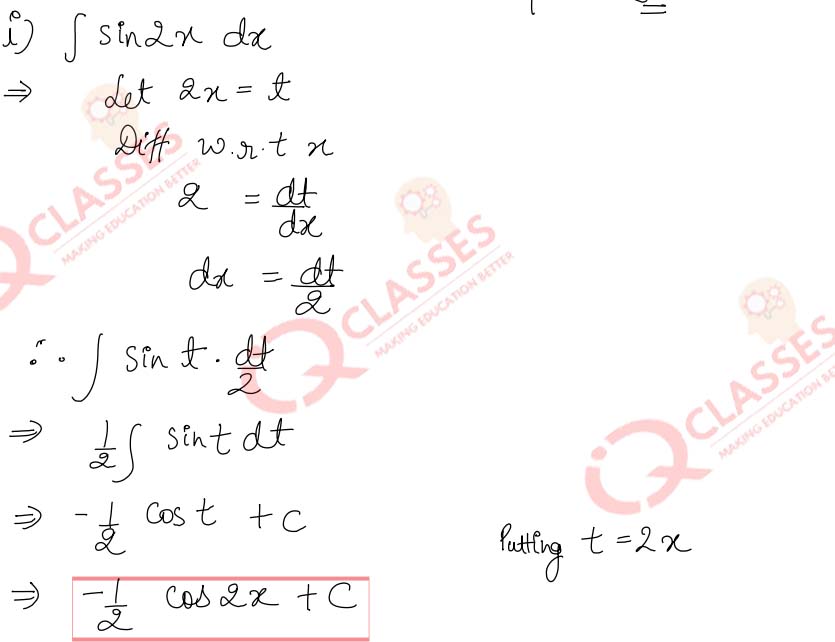 i) ∫ sin2x dx
⇒ Let 2x = t
Diff w.r.t x
2 = dt/dx
dx = dt/2
∴ ∫ sin t · dt/2
⇒ 1/2 ∫ sin t dt
⇒ -1/2 cos t + C
Putting t = 2x
⇒ -1/2 cos 2x + C
IQ CLASSES
MAKING EDUCATION BETTER
IQ CLASSES
MAKING EDUCATION BETTER
IQ CLASSES
MAKING EDUCATION BE